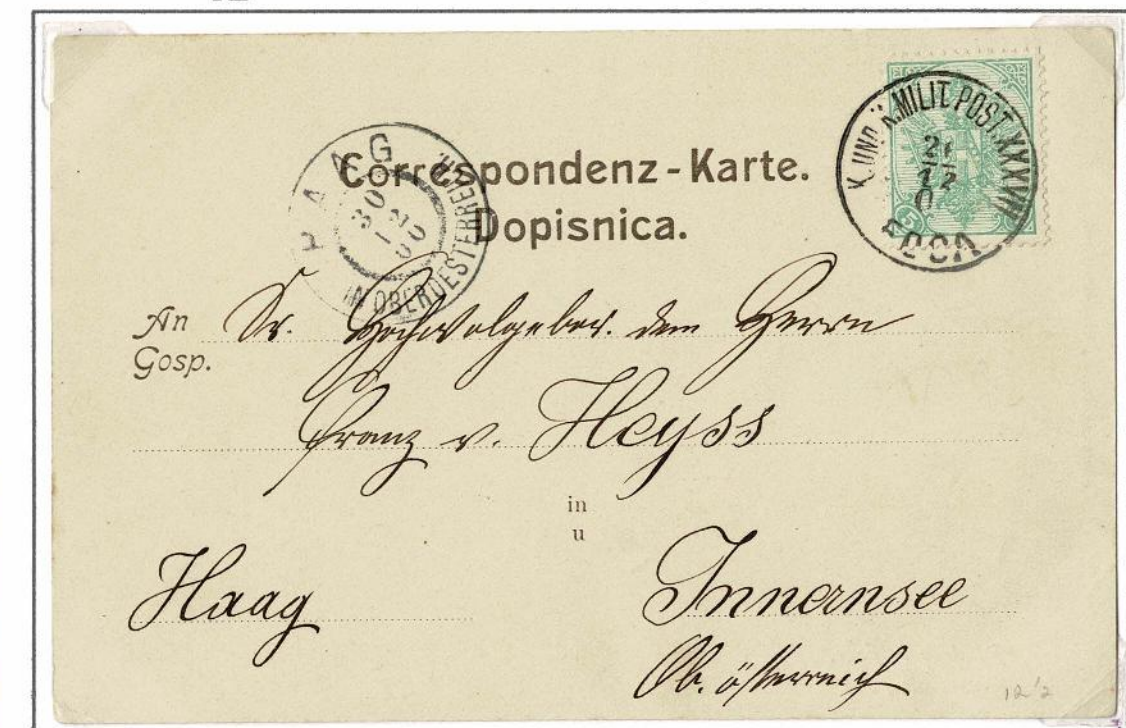 K. UND K. MILIT. POST. XXXVIII
12
FOCA
5
HAAG
30
12
00
IN OBEROESTERREICH
Correspondenz-Karte.
Dopisnica.
An Sr. Hochwolgebor. dem Herrn
Gosp.
Franz v. Heyss
in
u
Haag Innernsee
Ob. österreich
12'2